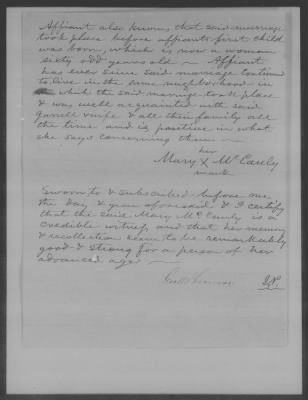 Affiant also knows, that said marriage
took place before affiants first child
was born, which is now a woman
sixty odd years old ~ Affiant
has ever since said marriage continued
to live in the same neighborhood in
which the said marriage took place
& was well acquainted with said
Garrell & wife & all their family all
the time and is positive in what
she says concerning them ~
her
Mary X McCauly
mark
Sworn to & subscribed before me
the day & year aforesaid & I certify
that the said Mary McCauly is a
credible witness, and that her memory
& recollection seems to be remarkably
good & strong for a person of her
advanced age ~
J.P.